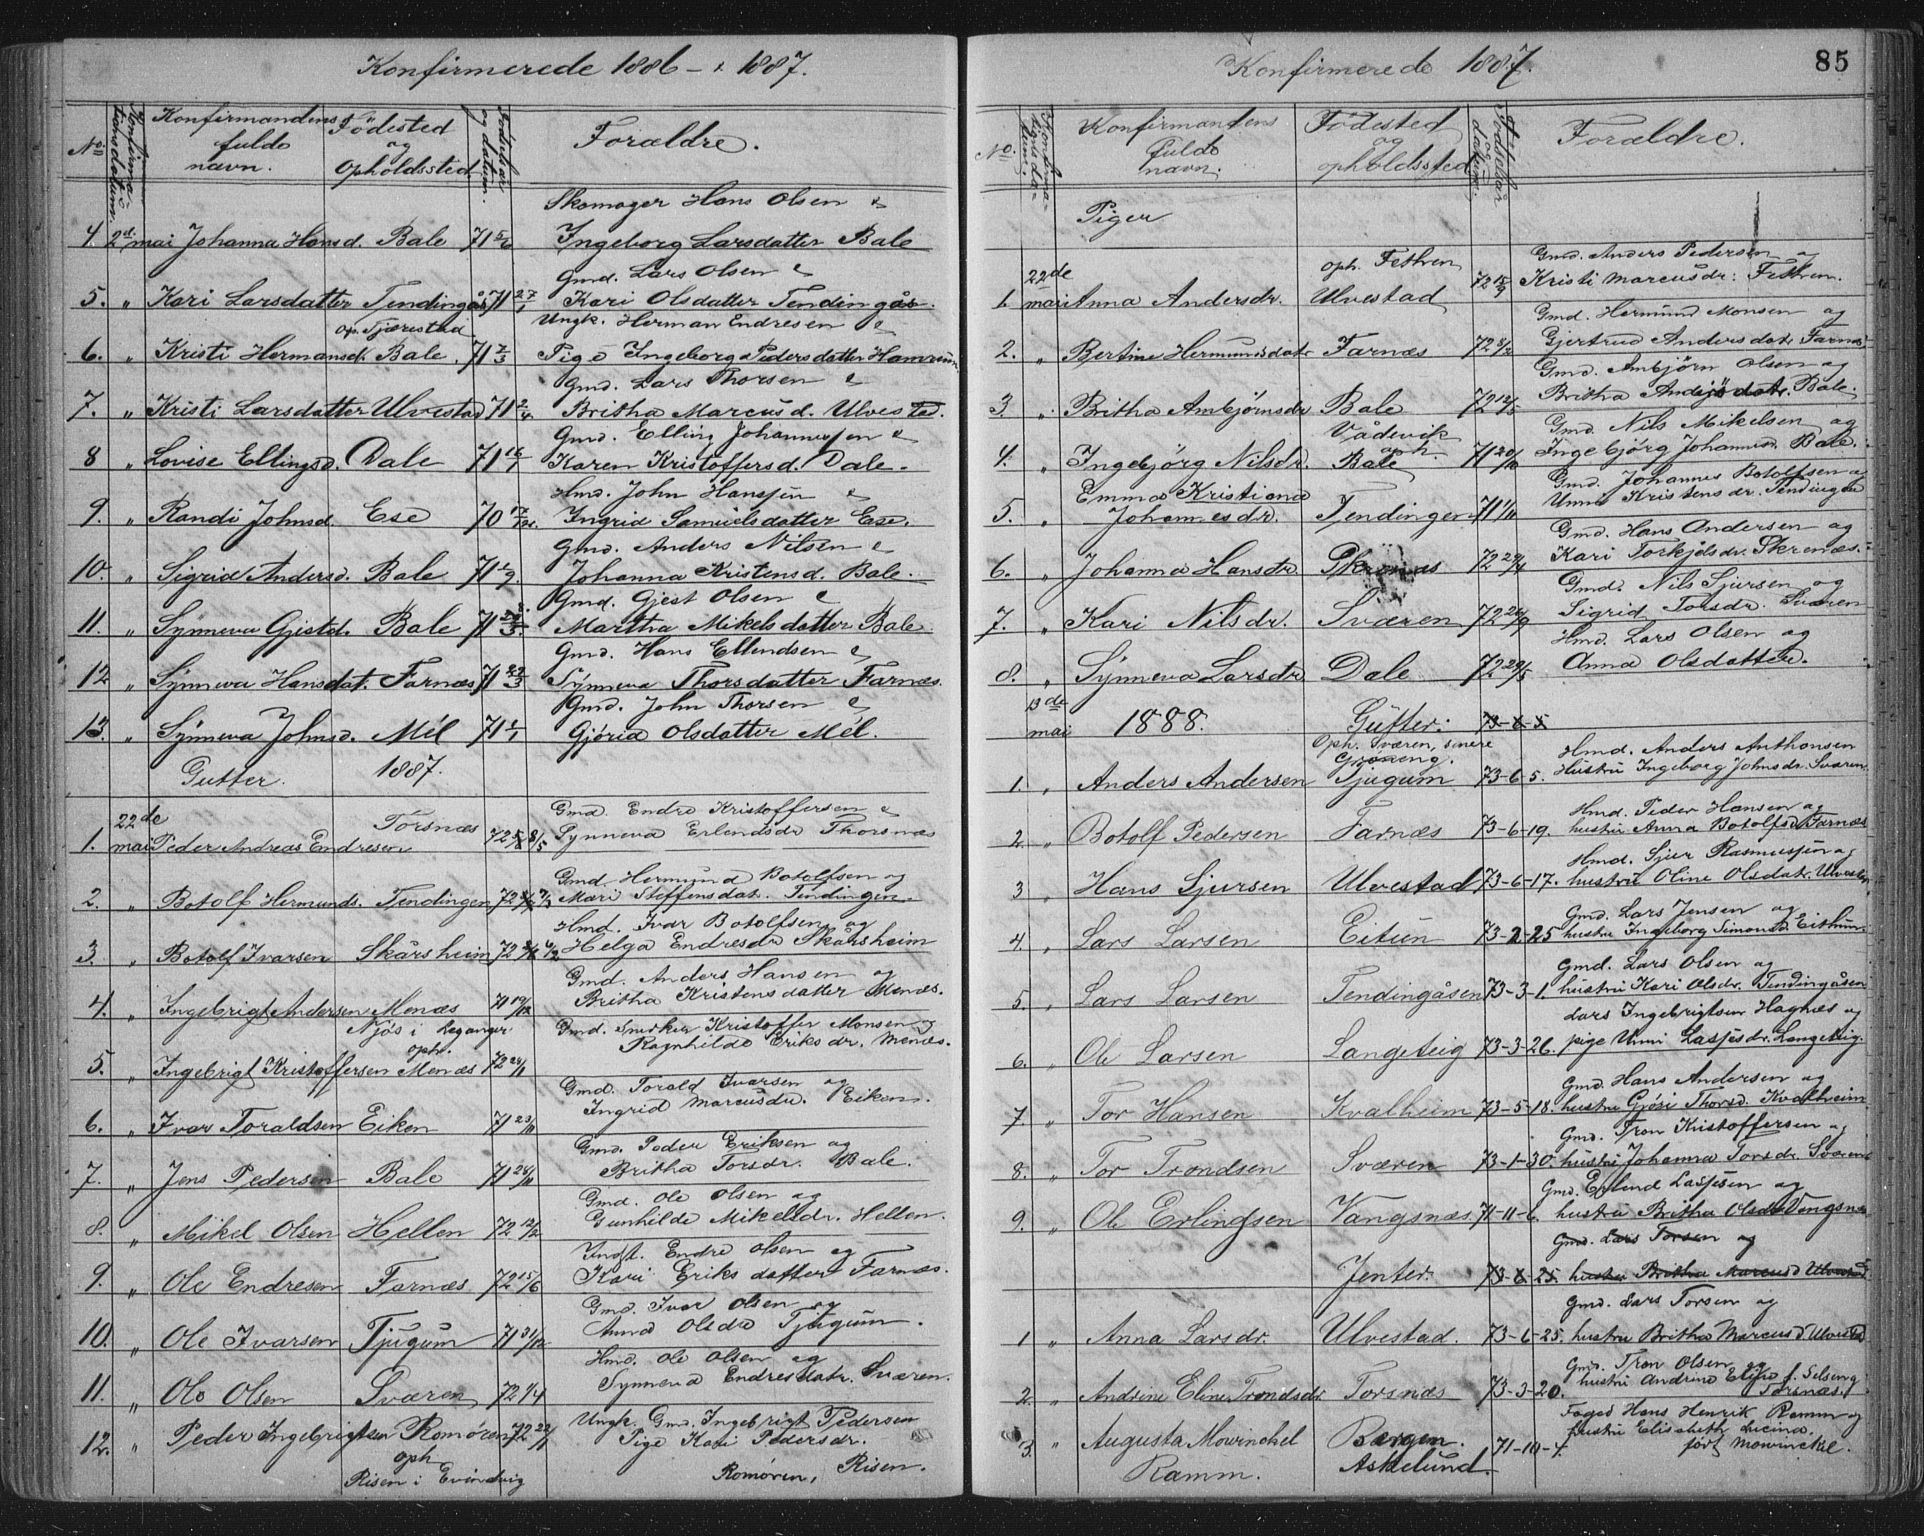 Konfirmerede 1886 - & 1887.
No. Konfirmationsdatum. Konfirmandens fulde navn. Fødested og Opholdssted Fødselsår og datum. Forældre.
Skomager Hans Olsen &
4. 2d. mai Johanna Hansd. Bale 71 5/6 Ingeborg Larsdatter Bale
Gmd. Lars Olsen &
5. " Kari Larsdatter Tendingås 71 27/1 Kari Olsdatter Tendingås.
op. Tjærestad Ungk. Herman Endresen &
6. " Kristi Hermansd. Bale. 71 2/3 Pige Ingeborg Pedersdatter Hamrum
Gmd. Lars Thorsen &
7. " Kristi Larsdatter Ulvestad 71 Britha Marcusd. Ulvested.
Gmd. Elling Johannesen &
8 " Lovise Ellingsd. Dale 71 Karen Kristoffersd. Dale.
Hmd. John Hanssen &
9. " Randi Johnsd. Ese 70 17/12 Ingrid Samuelsdatter Ese.
Gmd. Anders Nilsen &
10. " Sigrid Andersd. Bale 71 Johanna Kristensd. Bale.
Gmd. Gjest Olsen &
11. " Synneva Gjestd. Bale 71 Martha Mikelsdatter Bale
Gmd. Hans Ellendsen &
12 " Synneva Hansdat. Farnæs 71 23/3 Synneva Thorsdatter Farnæs.
Gmd. John Thorsen &
13. " Synneva Johnsd. Mél 71 1/1 Gjørid Olsdatter Mél.
Gutter. 1887.
22de Torsnæs Gmd Endre Kristoffersen &
1. mai Peder Andreas Endresen 72 8/5 Synneva Erlendsdr Thorsnæs
Gmd. Hermund Botolfsen og
2. " Botolf Hermunds. Tendingen 72 Mari Steffensdat. Tendingen.
Hmd. Ivar Botolfsen og
3. " Botolf Ivarsen Skårsheim 72 Helga Endresdr Skårsheim
Gmd. Anders Hansen og
4. " Ingebrigt Andersen Menæs 71 19/12 Britha Kristensdatter Menæs.
Njøs i Leganger Gmd. Snedker Kristoffer Monsen og
oph. Ragnhilde Eriksdr. Menæs.
5. " Ingebrigt Kristoffersen Menæs 72 24/1
Gmd. Torald Ivarsen og
6. " Ivar Toraldsen Eiken 71 23/11 Ingrid Marcusdr. Eiken.
Gmd. Peder Eriksen og
7. " Jens Pedersen Bale 71 24/11 Britha Torsdr. Bale.
Gmd. Ole Olsen og
8. " Mikel Olsen Hellen 72 12/2 Gunhilde Mikelsdr. Hellen.
Indst. Endre Olsen og
9. " Ole Endresen Farnæs 72 15/6 Kari Eriksdatter Farnæs.
Gmd. Ivar Olsen og
10. " Ole Ivarsen Tjugum 71 31/12 Anna Olsdr Tjugum.
Hmd. Ole Olsen og
11. " Ole Olsen Sværen 72 1/4 Synneva Endresdatr. Sværen.
Ungk. Gmd. Ingebrigt Pedersen
12. " Peder Ingebrigtsen Romøren 72 22/1 Pige Kari Pedersdr.
oph
Risen i Evindvig Romøren, Risen.
Konfirmerede 1887. 85
No. Konfirmationsdatum. Konfirmandens fulde navn. Fødested og opholdssted Fødselsår og datum. Forældre.
Piger
22de oph. Fethren Gmd. Anders Pedersen og
1. mai Anna Andersdr. Ulvestad 72 15/9 Kristi Marcusdr. Fethren.
Gmd. Hermund Monsen og
2. " Bertine Hermundsdatr Farnæs 72 8/2 Gjertrud Andersdatr Farnæs
Gmd. Ambjörn Olsen og
3. " Britha Ambjörnsdr Bale 72 12/5 Britha datr. Bale.
Vådevik Gmd. Nils Mikelsen og
4. " Ingebjörg Nilsdr. oph. Bale 71 20/10 Ingebjörg Johannesd. Bale.
Emma Kristiana Gmd. Johannes Botolfsen og
5. " Johannesdr. Tendingen 71 1/11 Unna Kristensdr. Tendingen
Gmd. Hans Andersen og
6. " Johanna Hansdr. Skrenæs 72 29/4 Kari Torkjelsdr. Skrenæs.
Gmd. Nils Sjursen og
7. " Kari Nilsdr. Sværen 72 26/9 Sigrid Torsdr. Sværen
Hmd. Lars Olsen og
8. " Synneva Larsdr Dale 72 29/5 Anna Olsdatter.
13de mai 1888. Gutter: 73-6-5
Oph. Sværen, senere Grøneng. Hmd. Anders Anthonsen
1. " Anders Andersen Tjugum 73-6-5. Hustru Ingeborg Johnsdr. Sværen.
Hmd. Peder Hansen og
2. " Botolf Pedersen Farnæs 73-6-19. hustru Anna Botolfsd. Farnæs
Hmd. Sjur Rasmussen og
3 " Hans Sjursen Ulvestad 73-6-17. hustru Oline Olsdatr. Ulvestad
Gmd. Lars Jensen og
4. " Lars Larsen Eitun 73-2-25 hustru Ingeborg Simonsd. Eithun
Gmd. Lars Olsen og
5. " Lars Larsen Tendingåsen 73-3-1. hustru Kari Olsdr. Tendingåsen
Lars Ingebrigtsen Hagnæs og
6. " Ole Larsen Langeteig 73-3-26. pige Unni Lassesdr. Langeteig.
Gmd. Hans Andersen og
7. " Tor Hansen Kvalheim 73-5-18. hustru Gjøri Thorsd. Kvalheim
Gmd. Tron Kristoffersen og
8. " Tor Trondsen Sværen 73-1-30. hustru Johanna Torsdr. Sværen
Gmd. Erlend Lassesen og
9. " Ole Erlingsen Vangsnæs 71-11-6. hustru Britha Olsd. Vangsnæs
Gmd. Lars Torsen og
Jenter. 73-6-25. hustru Britha Marcusd Ulvestad
Gmd. Lars Torsen og
1 " Anna Larsdr. Ulvestad. 73-6-25. hustru Britha Marcusd Ulvestad
Gmd. Tron Olsen og
2. " Andrine Eline Trondsdr Torsnæs 73-3-20. hustru Andrine Elise f. Selseng Torsnæs.
Foged Hans Henrik Ramm og
3. " Augusta Mowinckel Ramm. Bergen. Askelund. 71-10-7. hustru Elisabeth Lucinde, født Mowinckel.